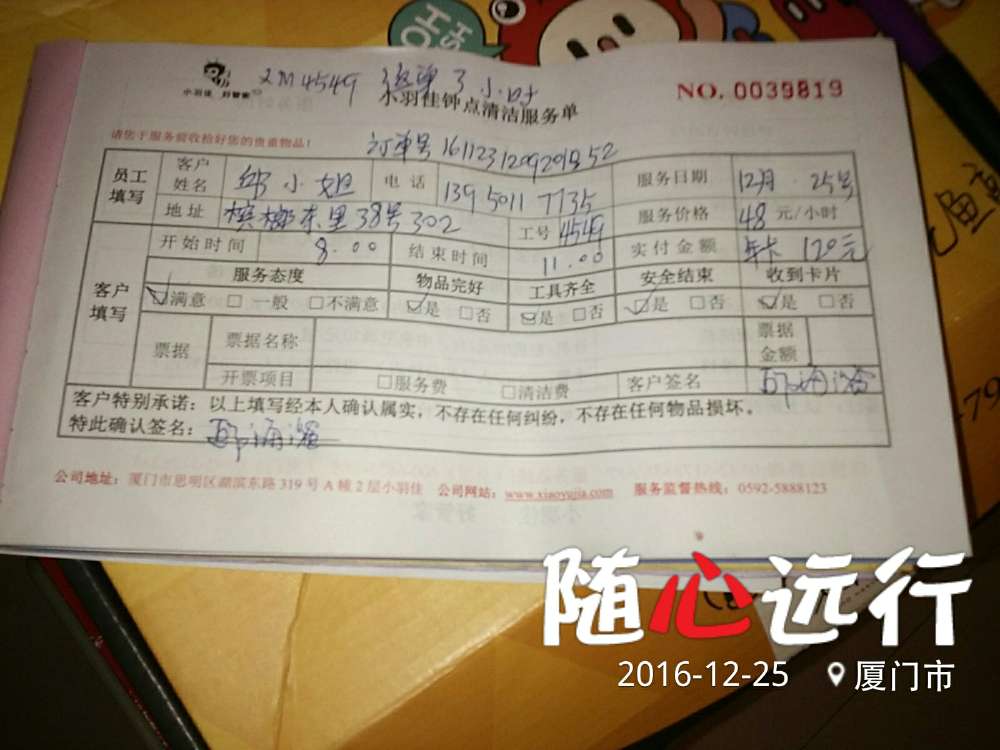 小羽佳 好管家
ZM4549 3小时
NO. 0039819
小羽佳钟点清洁服务单
请您于服务前收检好您的贵重物品！
订单号 16112312092018252
员工填写 客户姓名 邱小姐 电话 139 5011 7735 服务日期 12月 25号
地址 槟榔东里38号302 工号 4549 服务价格 48 元/小时
开始时间 8.00 结束时间 11.00 实付金额 年卡 120元
客户填写 服务态度 物品完好 工具齐全 安全结束 收到卡片
☑满意 □一般 □不满意 ☑是 □否 ☑是 □否 ☑是 □否 ☑是 □否
票据 票据名称 票据金额
开票项目 □服务费 □清洁费 客户签名
客户特别承诺：以上填写经本人确认属实，不存在任何纠纷，不存在任何物品损坏。
特此确认签名：
公司地址：厦门市思明区湖滨东路319号A幢2层小羽佳 公司网站：www.xiaoyujia.com 服务监督热线：0592-5888123
随心远行
2016-12-25 厦门市